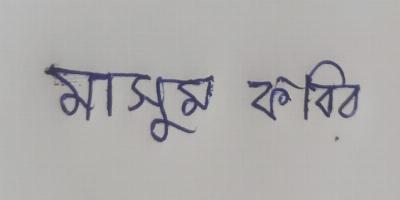 মাসুম কবির